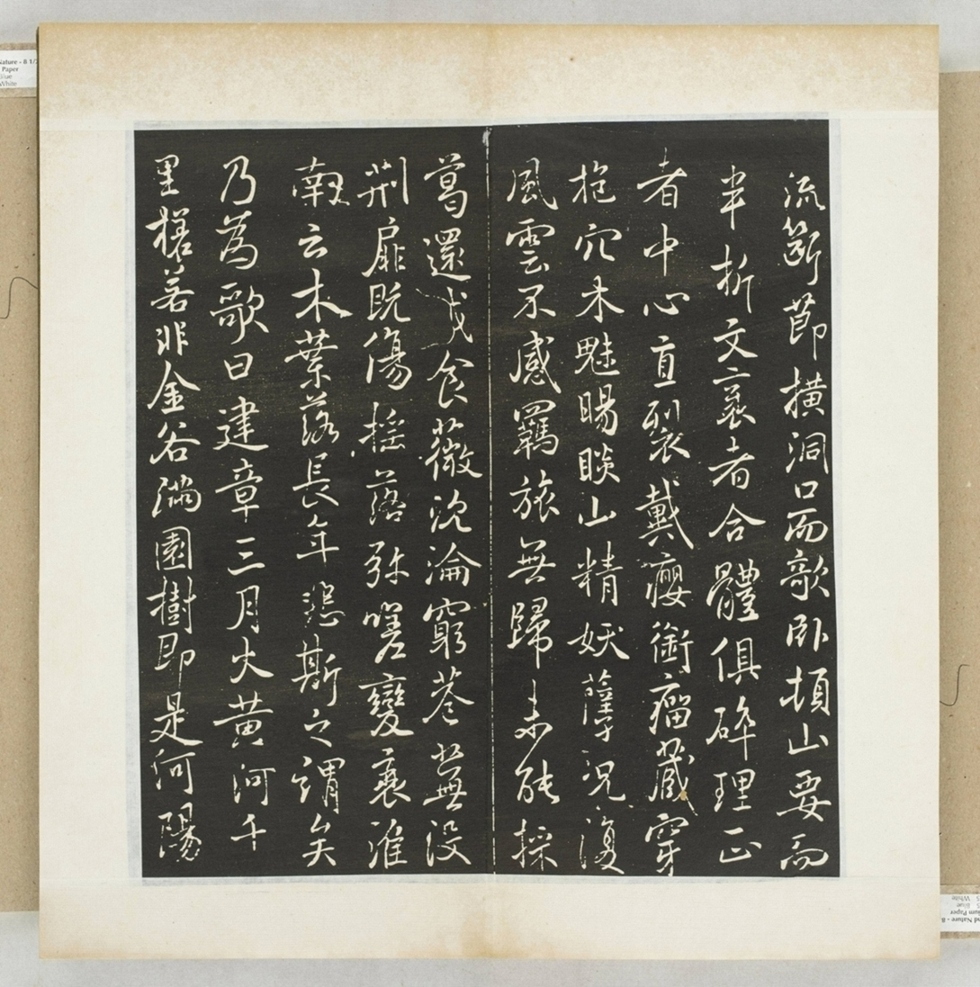 流斷節橫洞口而欹臥頓山要而
半折文袤者合體俱碎理正
者中心直裂戴癭銜瘤藏穿
抱穴木魅睗睒山精妖孽況復
風雲不感羈旅無歸未能採
葛還成食薇沈淪窮巷蕪没
荊扉既傷搖落弥嗟變衰淮
南云木葉落長年悲斯之謂矣
乃為歌曰建章三月火黃河千
里槎若非金谷滿園樹即是河陽
Nature - 8 1/2
Paper
White